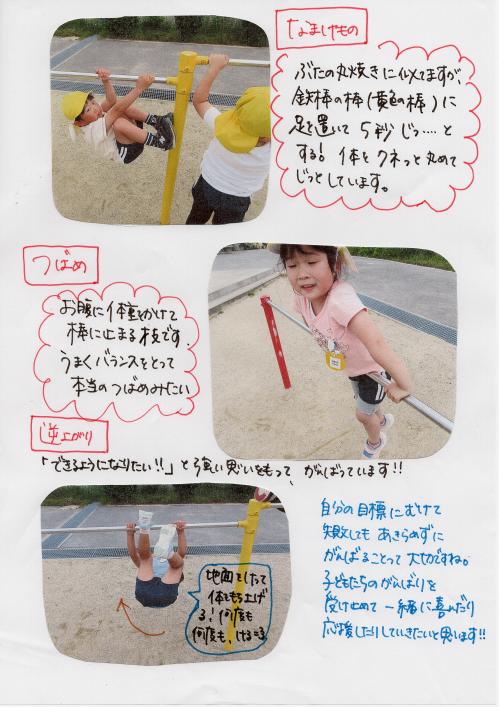 なまけもの
ぶたの丸焼きに似てますが、
鉄棒の棒(黄色の棒)に
足を置いて 5秒じっ‥‥と
する! 体をクネっと丸めて
じっとしています。
つばめ
お腹に体重をかけて
棒に止まる技です.
うまくバランスをとって
本当のつばめみたい
逆上がり
「できるようになりたい!!」と強い思いをもって、がんばっています!!
地面をしたって
体をもち上げ
る! 何度も
何度も、ける=3
自分の目標にむけて
失敗しても あきらめずに
がんばることって大切ですね。
子どもたちのがんばりを
受け止めて 一緒に喜んだり
応援したりしていきたいと思います!!